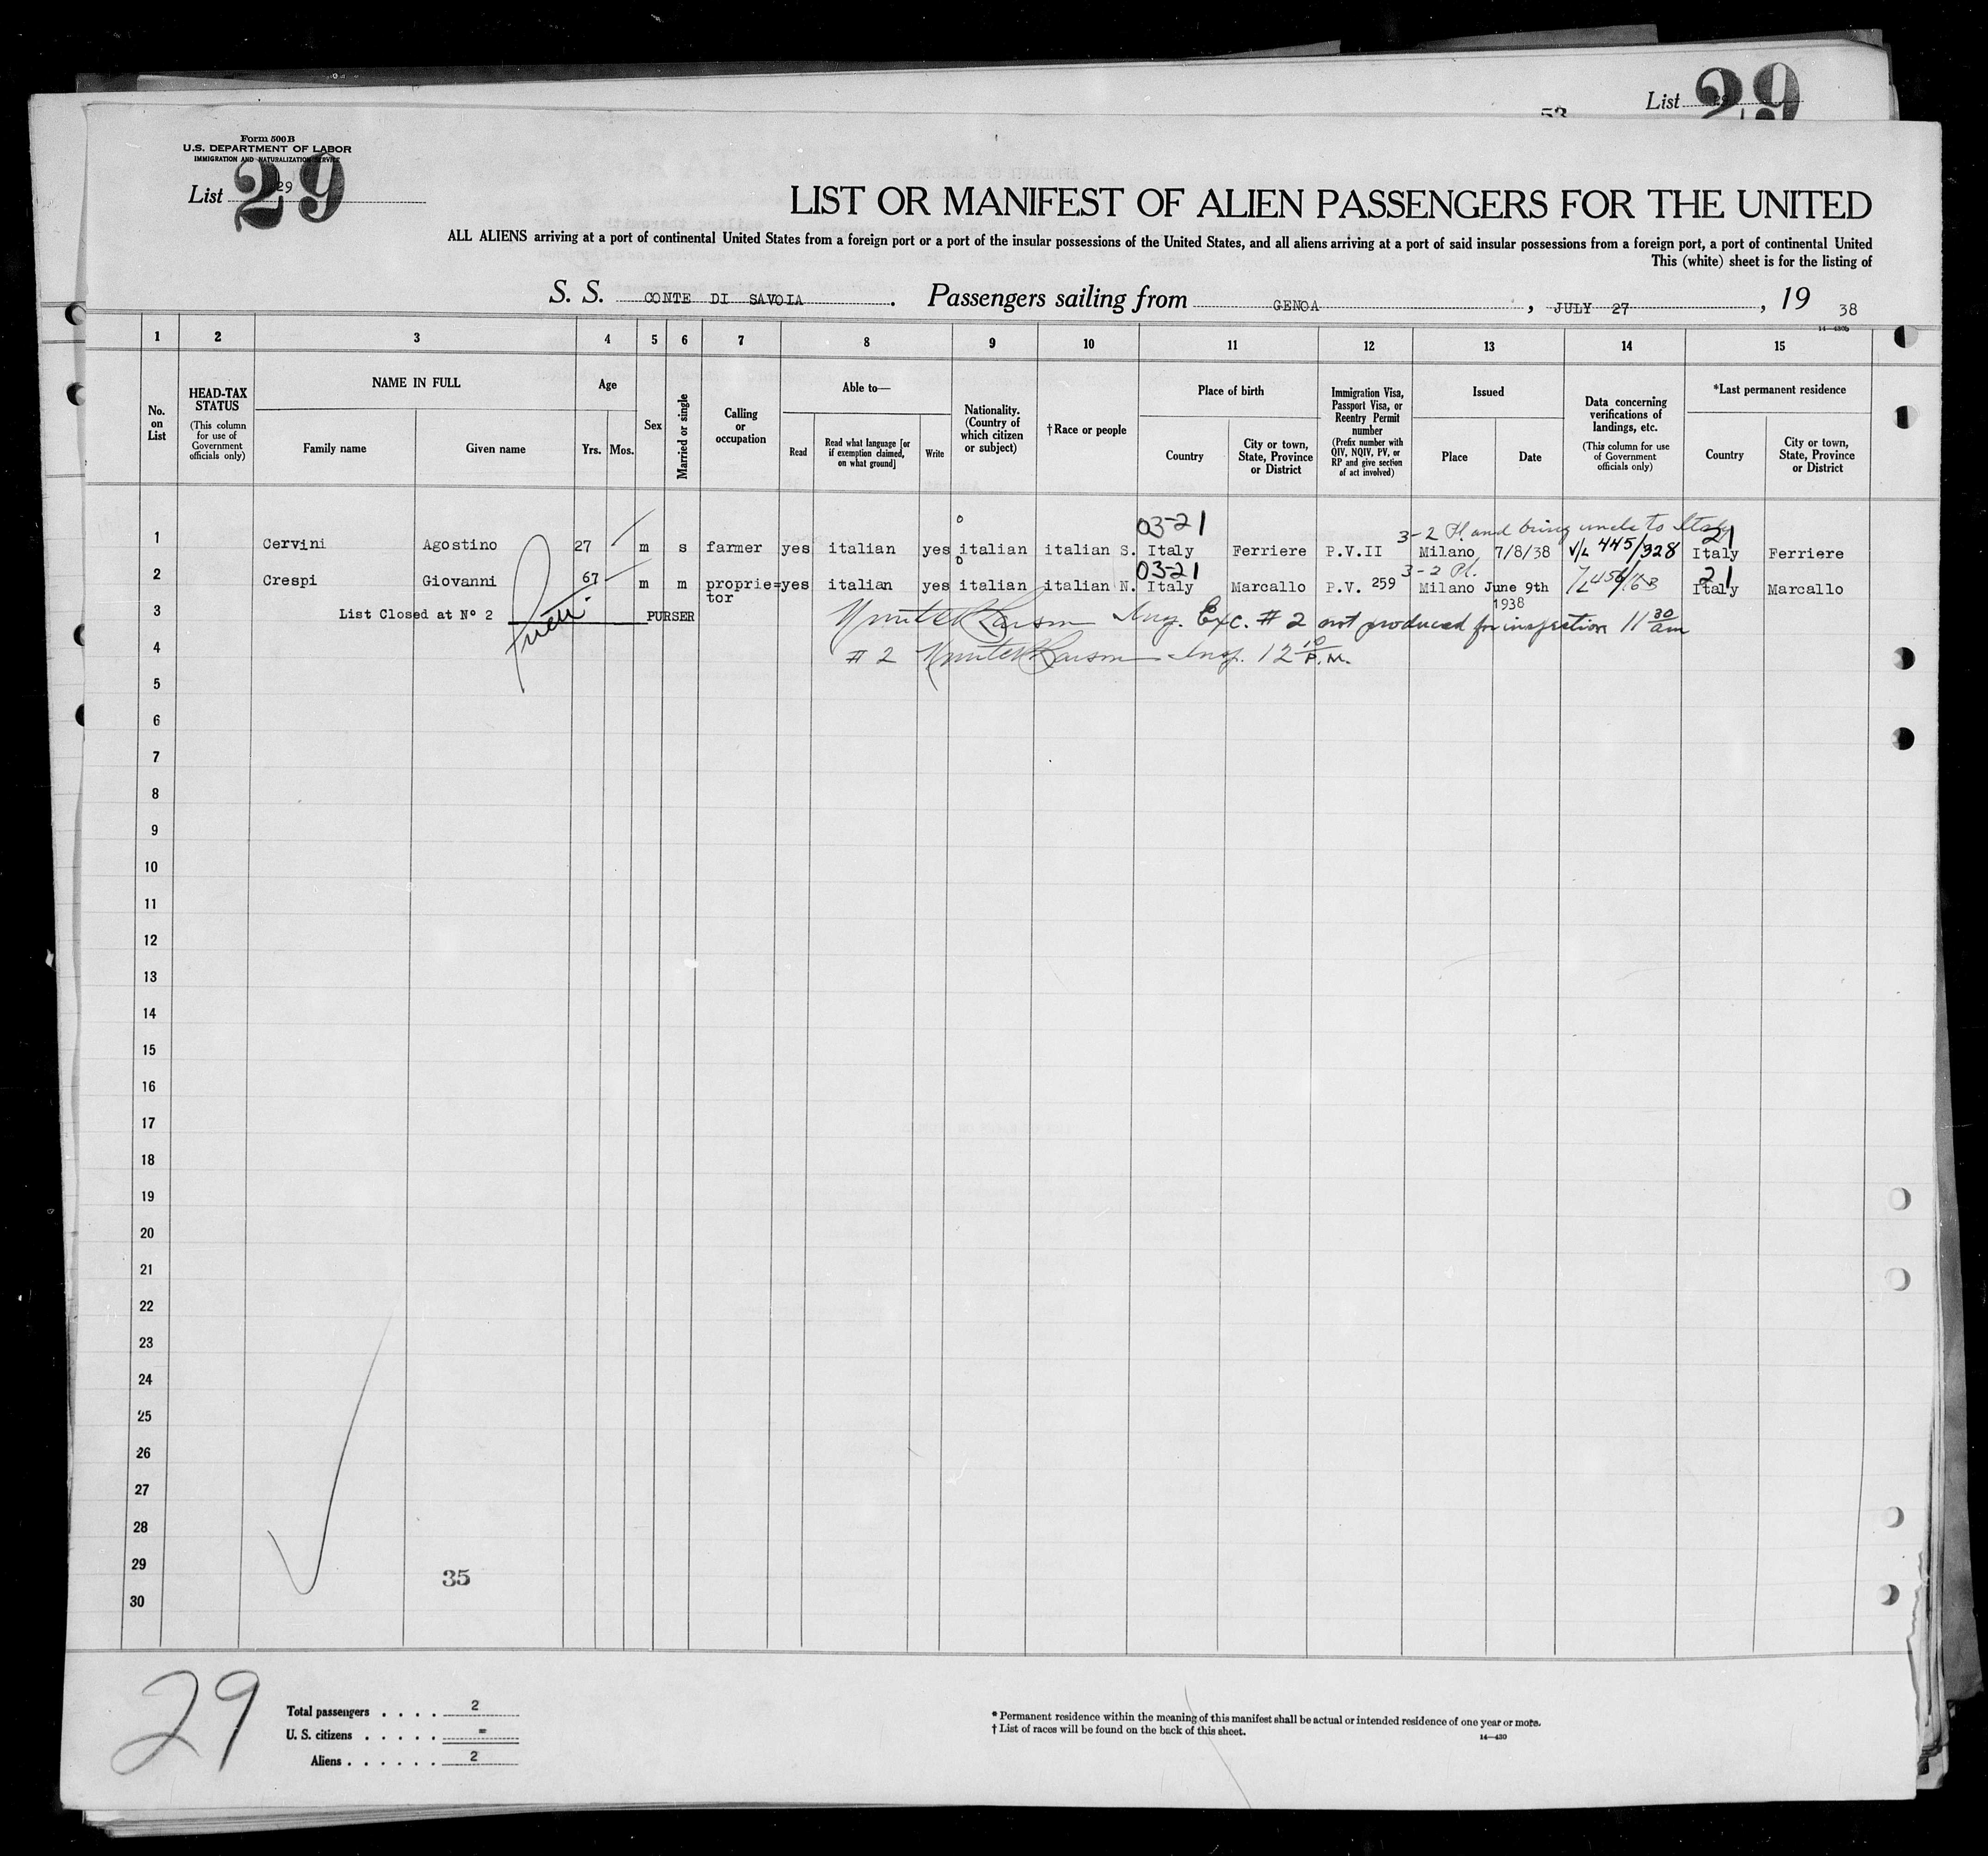 List 29
53
Form 500 B
U.S. DEPARTMENT OF LABOR
IMMIGRATION AND NATURALIZATION SERVICE
List 29 29
LIST OR MANIFEST OF ALIEN PASSENGERS FOR THE UNITED
ALL ALIENS arriving at a port of continental United States from a foreign port or a port of the insular possessions of the United States, and all aliens arriving at a port of said insular possessions from a foreign port, a port of continental United
This (white) sheet is for the listing of
S. S. CONTE DI SAVOIA. Passengers sailing from GENOA, JULY 27, 19 38
1 2 3 4 5 6 7 8 9 10 11 12 13 14 15
No. on List
HEAD-TAX STATUS
(This column for use of Government officials only)
NAME IN FULL
Family name
Given name
Age
Yrs. Mos.
Sex
Married or single
Calling or occupation
Able to—
Read
Read what language [or if exemption claimed, on what ground]
Write
Nationality. (Country of which citizen or subject)
†Race or people
Place of birth
Country
City or town, State, Province or District
Immigration Visa, Passport Visa, or Reentry Permit number
(Prefix number with QIV, NQIV, PV, or RP and give section of act involved)
Issued
Place
Date
Data concerning verifications of landings, etc.
(This column for use of Government officials only)
*Last permanent residence
Country
City or town, State, Province or District
03-21 3-2 Pl. and bring uncle to Italy 21
1 Cervini Agostino 27 m s farmer yes italian yes italian italian S. Italy Ferriere P.V.II Milano 7/8/38 V/L 445/328 Italy Ferriere
03-21 3-2 Pl. 21
2 Crespi Giovanni 67 m m proprie= yes italian yes italian italian N. Italy Marcallo P.V. 259 Milano June 9th Italy Marcallo
tor 1938
3 List Closed at Nº 2 PURSER Insp. Exc. # 2 not produced for inspection 11 30 am
4 # 2 Insp. 12 10 P.M.
5
6
7
8
9
10
11
12
13
14
15
16
17
18
19
20
21
22
23
24
25
26
27
28
29
30
35
29
Total passengers . . . . 2
U. S. citizens . . . . . =
Aliens . . . . . . 2
* Permanent residence within the meaning of this manifest shall be actual or intended residence of one year or more.
† List of races will be found on the back of this sheet.
14—430